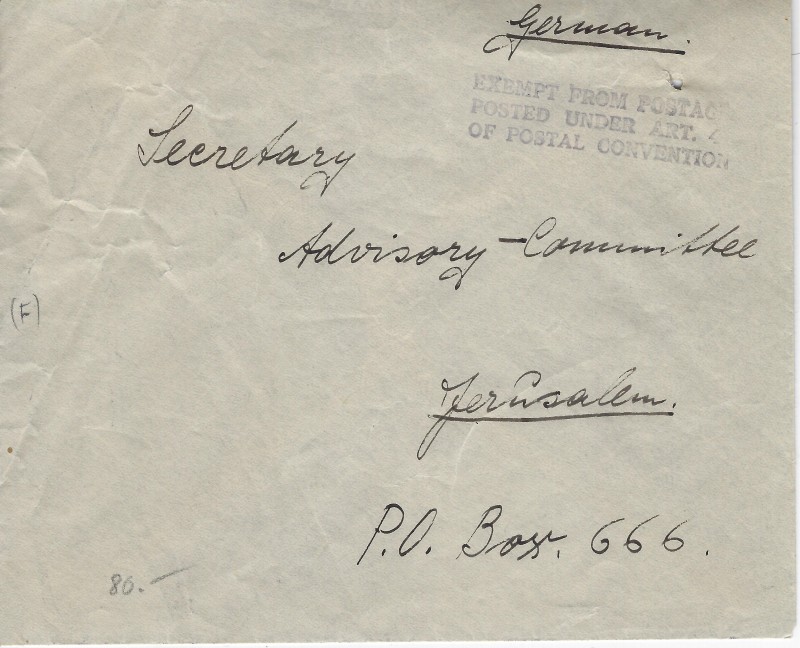 German.
EXEMPT FROM POSTAG
POSTED UNDER ART. 4
OF POSTAL CONVENTION
Secretary
Advisory-Committee
(F)
Jerusalem.
P.O. Box. 666.
80.—